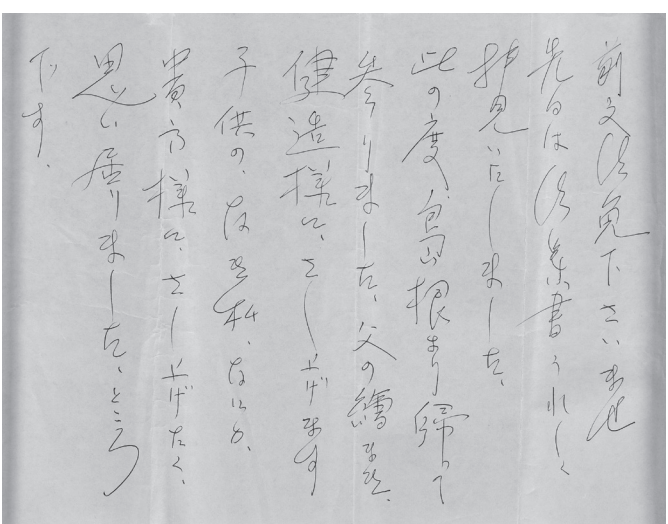 前文御免下さいませ
先日は御葉書うれしく
拝見いたしました、
此の度島根より帰って
参りました、父の繪
健造様に、さし上げます
子供の、
貴方様に、さし上げたく、
思い居りました、ところ
です、